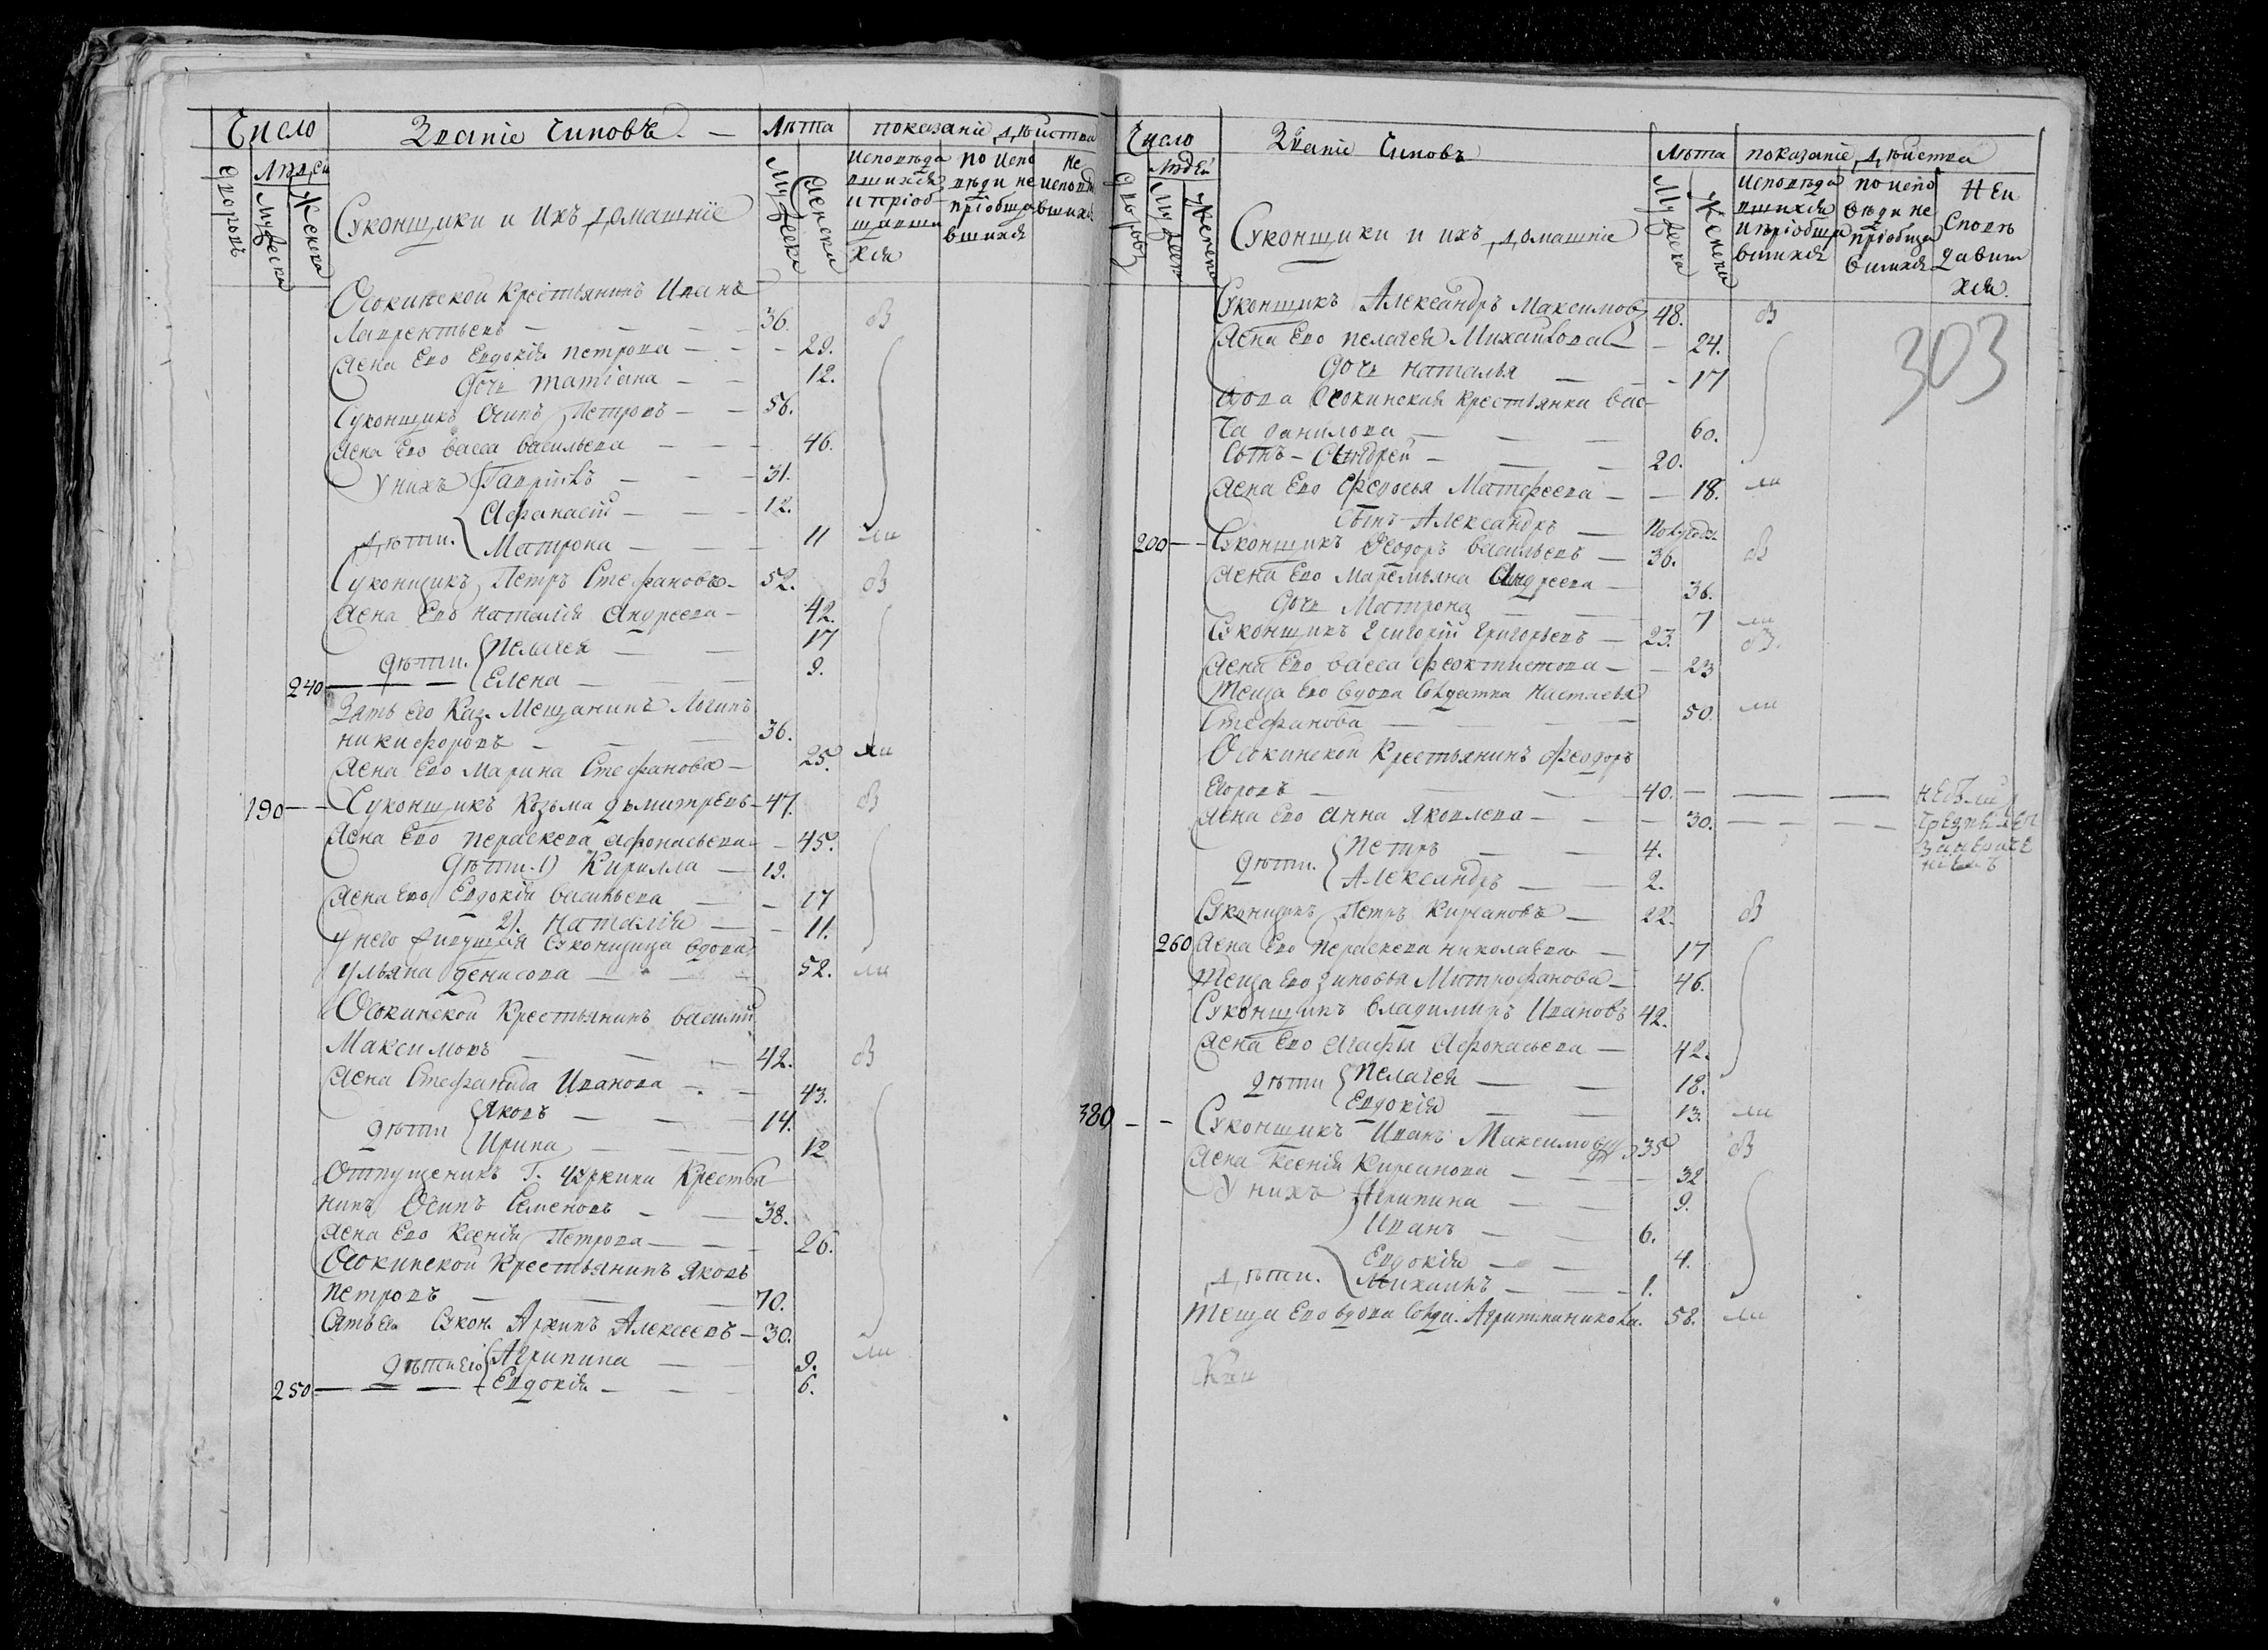 Число Званіе Чиновъ. — Лѣта показаніе дѣиства
дворовъ Людеи Мужеска Женска Суконщики и ихъ домашніе Мужеска Женска Исповѣдавшихся и пріобщавшихся по исповѣди не пріобщавшихся Не исповѣдавшихся
Осокинской Крестьянинъ Иванъ
Лаврентьевъ — — — 36. В
Жена Его Евдокія Петрова — — — 29.
Дочь Татіана — — 12.
Суконщикъ Осипъ Петровъ — — 56.
Жена Его Васса Васильева — — — 46.
У нихъ Гавріилъ — — — 31.
Афанасій — — — 12.
дѣти. Матрона — — — 11 ли
Суконщикъ Петръ Стефановъ — 52. В
Жена Евъ Наталія Андреева — 42.
Пелагея — — 17
дѣти.
240 — — — Елена — — 9.
Зять его Каз. Мещанинъ Логинъ
Никифоровъ — — — 36.
Жена Его Марина Стефанова — 25. ли
190 — — Суконщикъ Козьма Дьмитревъ — 47. В
Жена Его Параскева Афонасьева — 45.
Дѣти. 1) Кирилла — 19.
Жена Его Евдокія Васильева — — 17
2). Наталія — — 11.
У него живущая Суконщица вдова
Ульяна Денисова — — — 52. ли
Осокинской Крестьянинъ Василій
Максимовъ — — — 42. В
Жена Стефанида Иванова — — 43.
Яковъ — — — 14.
дѣти
Ирина — — — 12
Отпущеникъ Г. Чуркина Крестья
нинъ Осипъ Семеновъ — — 38.
Жена Его Ксенія Петрова — — — 26.
Осокинской Крестьянинъ Яковъ
Петровъ — — — 70.
Зять Ев Сукон. Архипъ Алексеевъ — 30.
дѣти его Агрипина — — 9. ли
250 — — — Евдокія — — 6.
Число Званіе Чиновъ Лѣта показаніе дѣиства
дворовъ Людеи Мужеск Женска Суконщики и ихъ домашніе Мужеска Женска Исповѣдавшихся и пріобщавшихся по исповѣди не пріобщавшихся Не исповѣдавшихся.
Суконщикъ Александръ Максимовъ 48. В
303
Жена Его Пелагея Михаилова — 24.
Дочь Наталья — — — 17
Вдова Осокинская крестьянка Вас-
са Данилова — — — 60.
Сынъ — Андреи — — — 20.
Жена Его Федосья Матфеева — — 18. ли
Сынъ Александръ — Полугода.
200 — — Суконщикъ Феодоръ Васильевъ — 36. В
Жена Его Маремьяна Андреева — 36.
Дочь Матрона — — 7 ли
Суконщикъ Григорій Григорьевъ — 23. В.
Жена Его Васса Феоктистова — — 23
Теща Его Вдова Солдатка Настасья
Стефанова — — — — 50 ли
Осокинской Крестьянинъ Феодоръ
Егоровъ — — — 40. — — —
Жена Его Анна Яковлева — — — 30. — — —
Петръ — — 4.
дѣти.
Александръ — — 2.
Суконщикъ Петръ Кирсановъ — 22. В
260 Жена Его Параскева Николаева — 17
Теща Его Зиновья Митрофанова — 46.
Суконщикъ Владимиръ Ивановъ 42.
Жена Его Агафья Афонасьева — 42.
дѣти Пелагея — — 18.
Евдокія — — 13. ли
380 — — Суконщикъ Иванъ Максимовъ 35 В
Жена Ксенія Кирсанова — — — 32
У нихъ Агрипина — — 9.
Иванъ — — 6.
Евдокія — — 4.
дѣти. Михаилъ — — — 1.
Теща Его вдова Солда. 58. ли